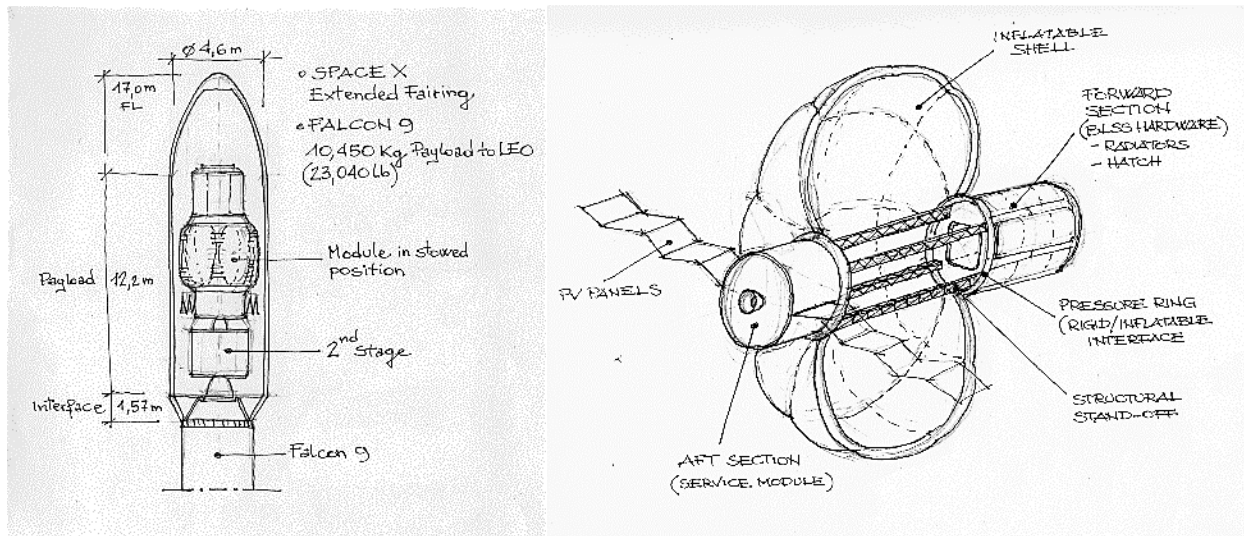 Ø 4,6 m
17,0m
FL
SPACE X
Extended Fairing
FALCON 9
10,450 Kg Payload to LEO
(23,040 lb)
Module in stowed
position
Payload 12,2m
2nd stage
Interface 1,57m
Falcon 9
INFLATABLE
SHELL
FORWARD
SECTION
(BLSS HARDWARE)
- RADIATORS
- HATCH
PV PANELS
PRESSURE RING
(RIGID/INFLATABLE
INTERFACE
STRUCTURAL
STAND-OFF
AFT SECTION
(SERVICE MODULE)